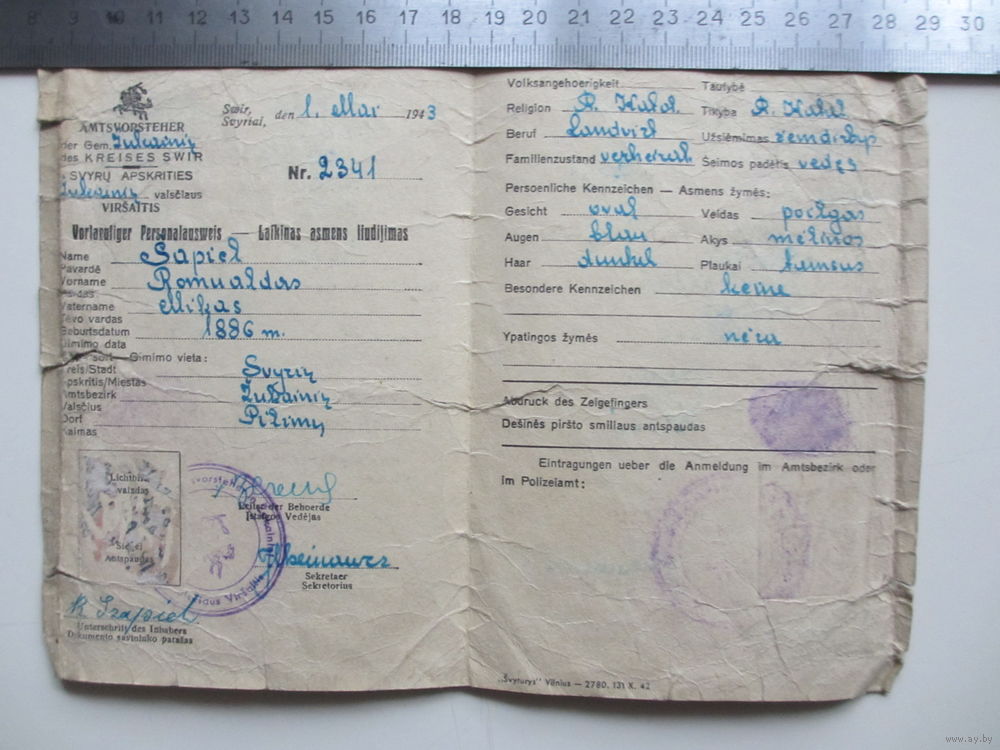 8 9 10 11 12 13 14 15 16 17 18 19 20 21 22 23 24 25 26 27 28 29 30
AMTSVORSTEHER
der Gem.
des KREISES SWIR
SVYRŲ APSKRITIES
valsčiaus
VIRŠAITIS
Swir,
Svyriai, den 1. Mai 1943
Nr. 2341
Vorlaeufiger Personalausweis — Laikinas asmens liudijimas
Name Sapiel
Pavardė
Vorname Romualdas
Vardas
Vatername Mikas
Tėvo vardas
Geburtsdatum 1886 m.
Gimimo data
Gimimo vieta:
Kreis/Stadt Svyrių
Apskritis/Miestas
Amtsbezirk
Valsčius
Dorf
Kaimas
Lichtbild
vaizdas
Siegel
Antspaudas
Leiter der Behoerde
Įstaigos Vedėjas
Sekretaer
Sekretorius
R Szapiel
Unterschrift des Inhabers
Dokumento savininko parašas
Volksangehoerigkeit Tautybė
Religion R. Katal. Tikyba R. Katal.
Beruf Landvirt Užsiėmimas žemdirbp
Familienzustand verheirat Šeimos padėtis vedęs
Persoenliche Kennzeichen — Asmens žymės:
Gesicht oval Veidas pailgas
Augen blau Akys mėlinos
Haar dunkel Plaukai tamsus
Besondere Kennzeichen keine
Ypatingos žymės nėra
Abdruck des Zeigefingers
Dešinės piršto smiliaus antspaudas
Eintragungen ueber die Anmeldung im Amtsbezirk oder
im Polizeiamt:
„Švyturys" Vilnius — 2780. 131 X. 42
www.ay.by